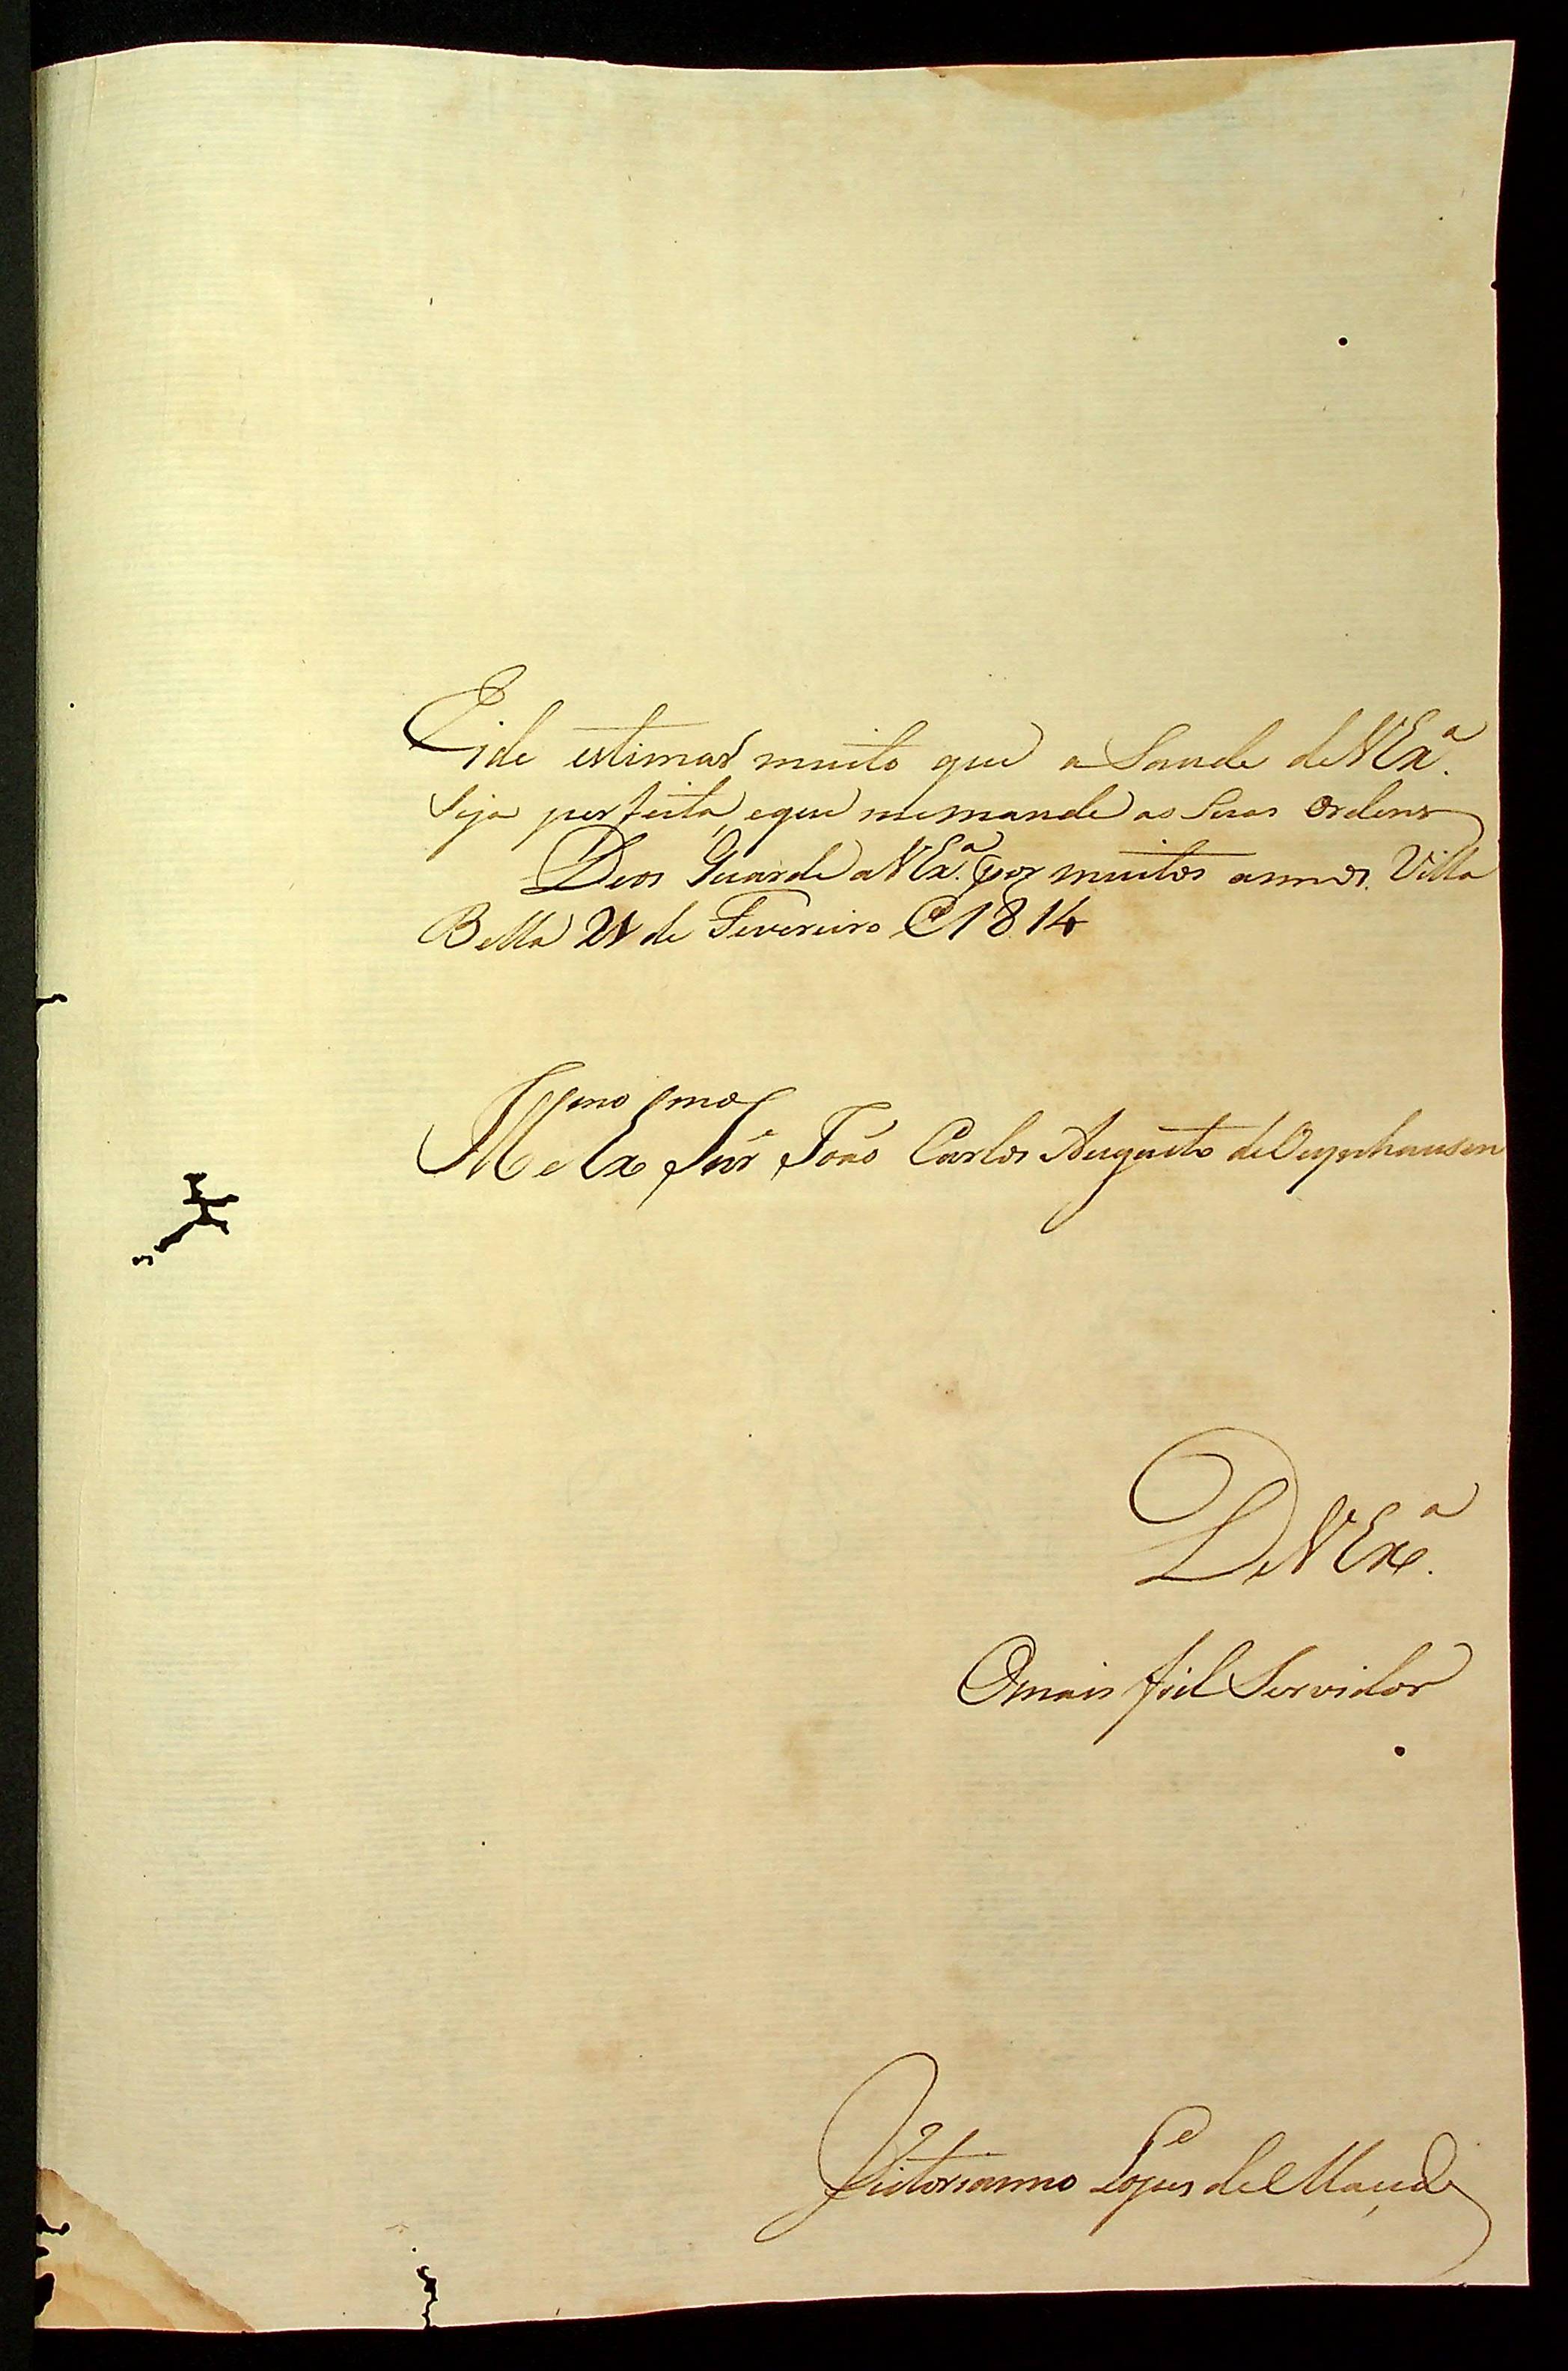 Eide estimar muito que a Saude de VEx.ª
Seja perfeita, eque memande as Suas Ordens
Deos Guarde a VEx.ª por muitos annos. Villa
Bella 21 de Fevereiro de 1814
Illmo e Exmo Snr João Carlos Augusto de Oeynhausen
De VEx.ª
Omais fiel Servidor
Victorianno Lopes de